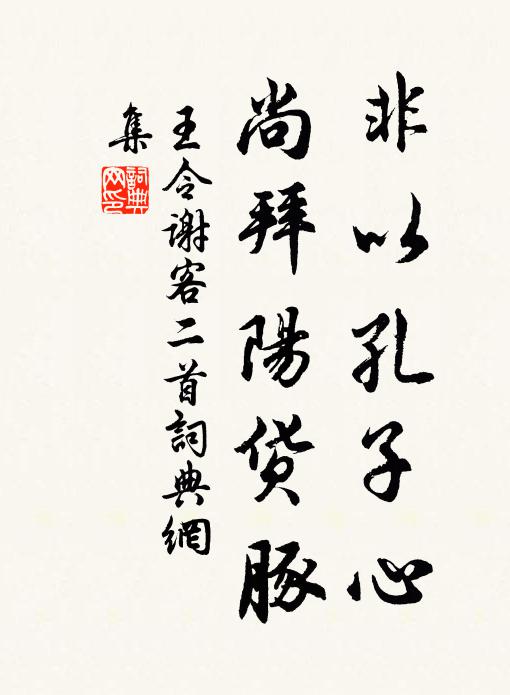 非以孔子心
尚拜陽貨豚
王令谢客二首詞典網
集
詞典
网印